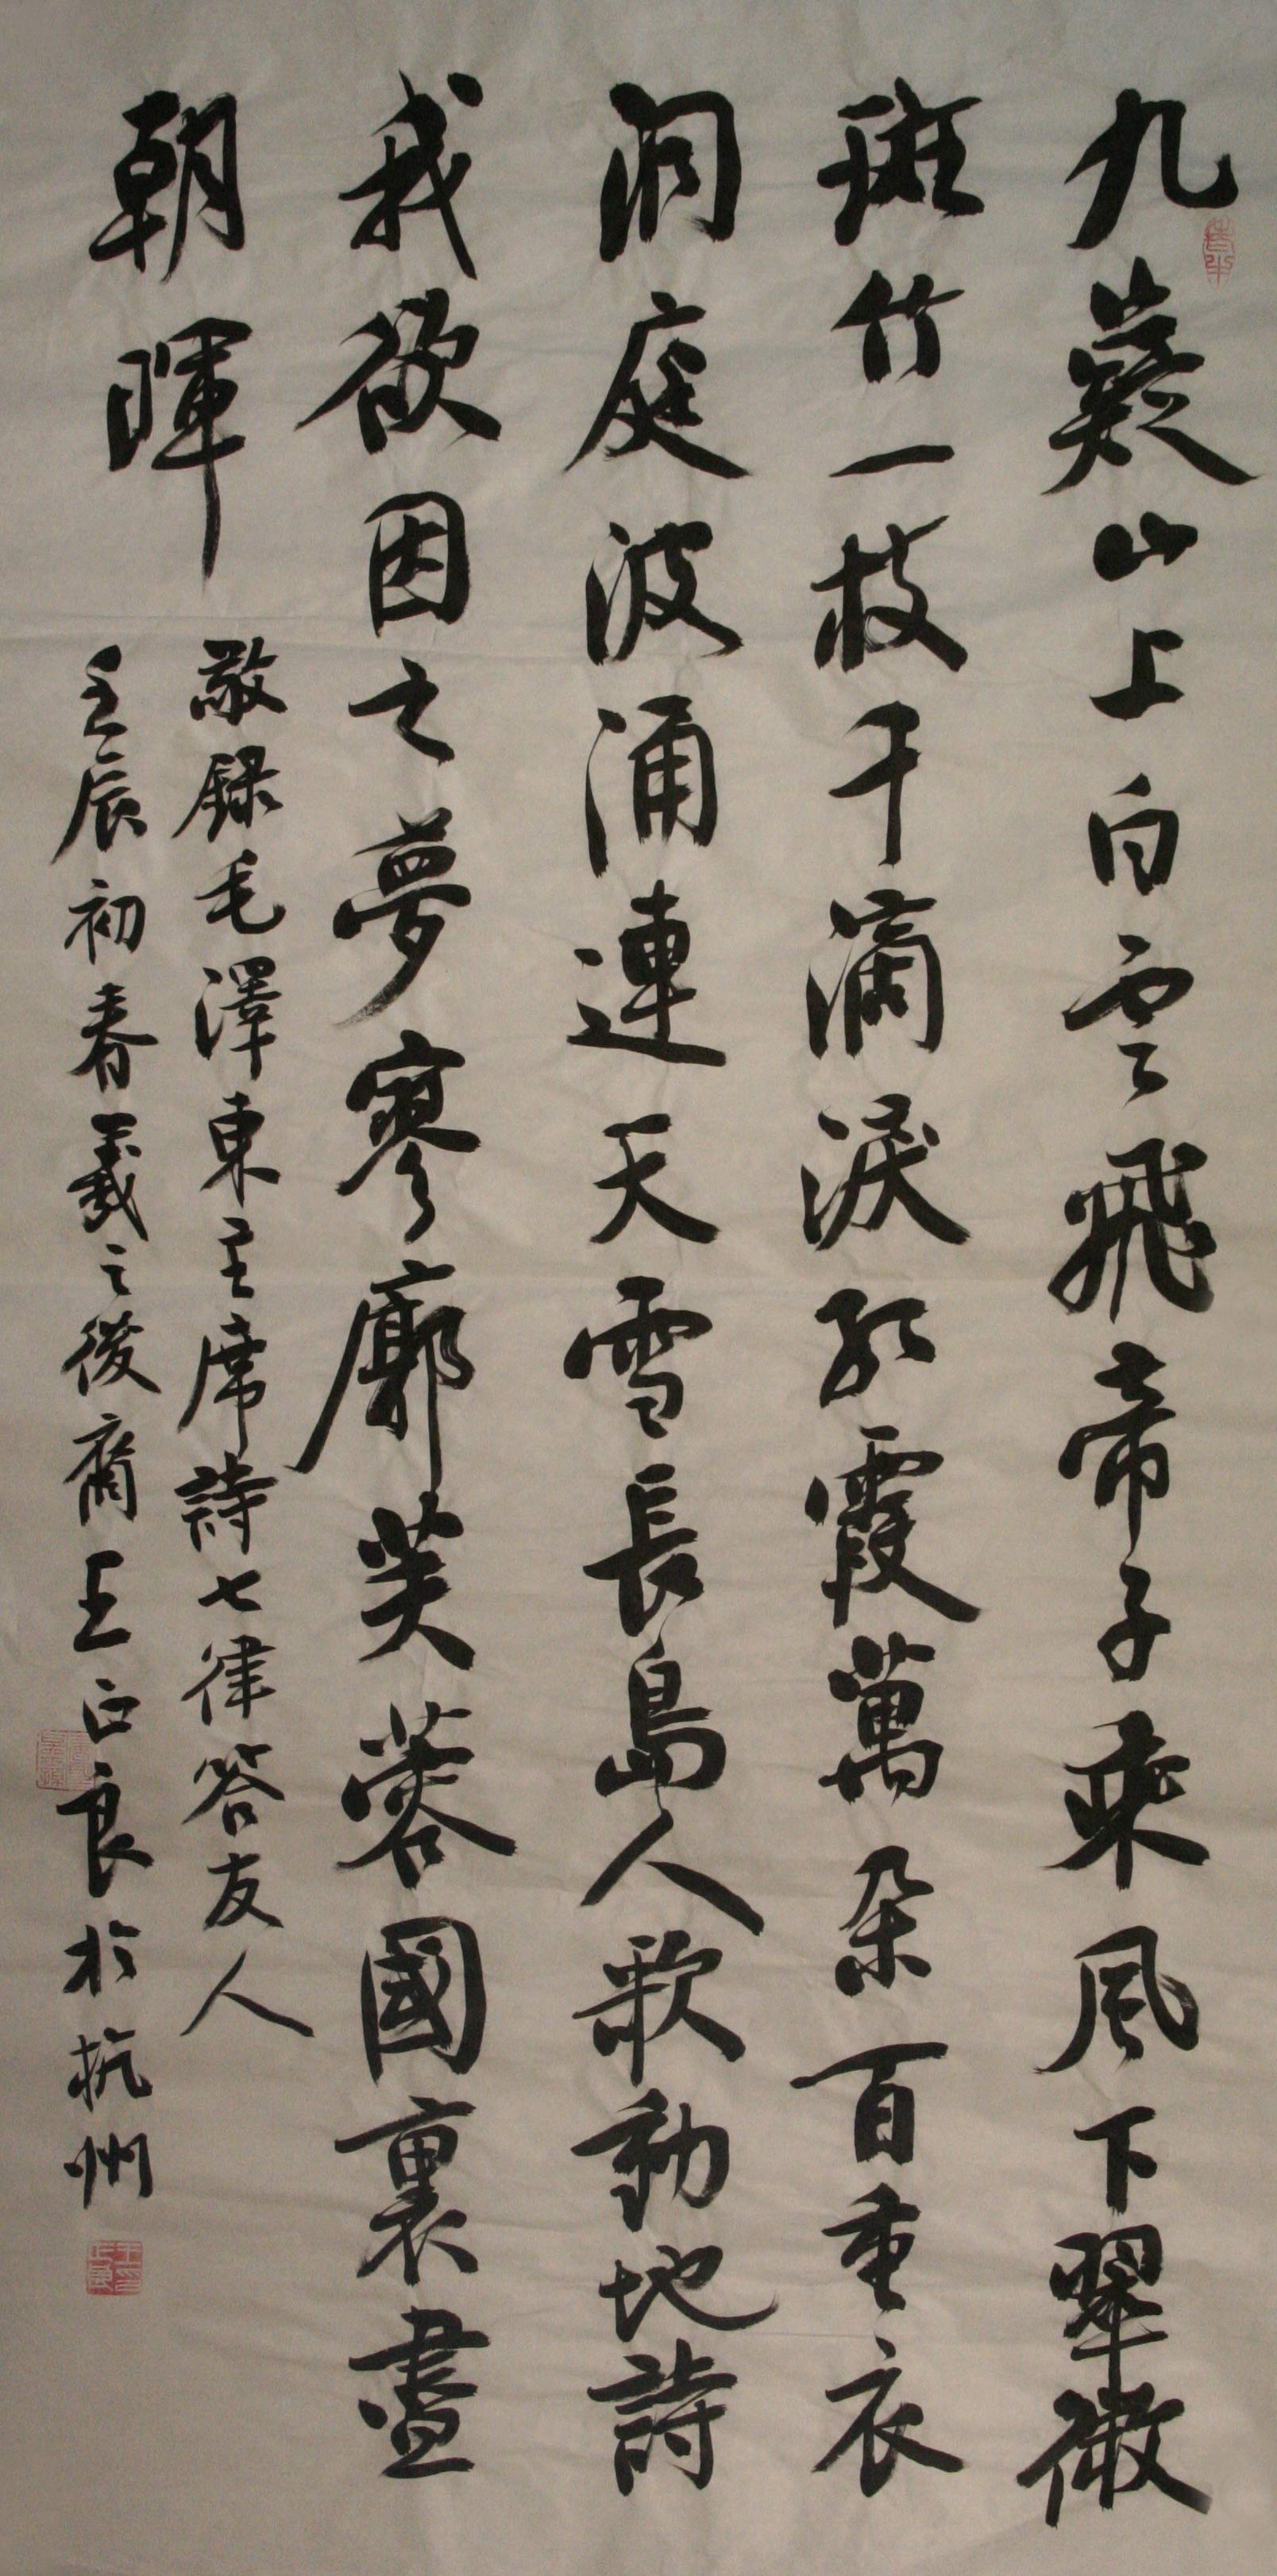 九嶷山上白雲飛帝子乘風下翠微
斑竹一枝千滴淚紅霞萬朵百重衣
洞庭波涌連天雪長島人歌動地詩
我欲因之夢寥廓芙蓉國裏盡
朝暉
敬錄毛澤東主席詩七律答友人
壬辰初春羲之後裔王正良於杭州